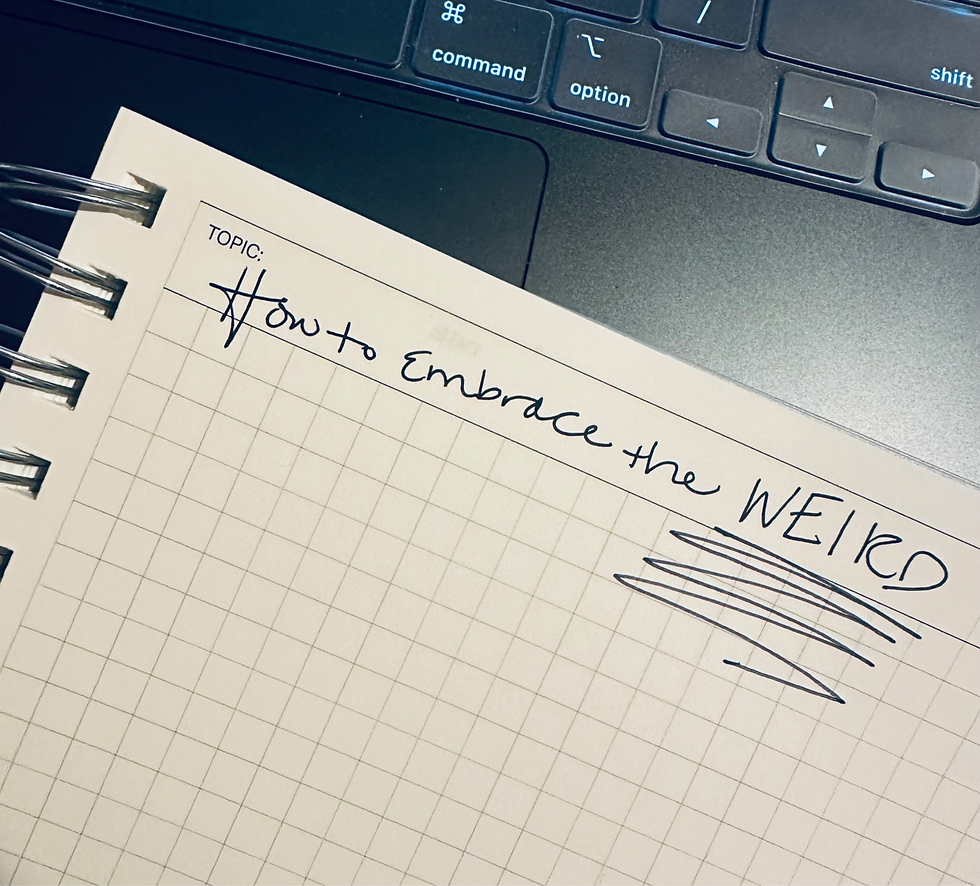 ⌘
command
⌥
option
/
shift
◀
▲
▼
▶
TOPIC:
How to Embrace the WEIRD